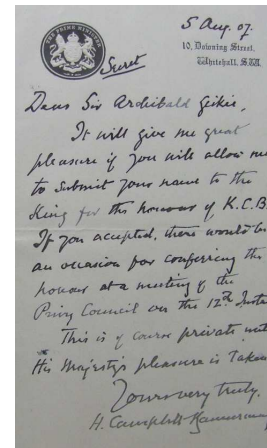 THE PRIME MINISTER
5 Aug. 07.
10, Downing Street,
Whitehall, S.W.
Secret
Dear Sir Archibald Geikie,
It will give me great
pleasure if you will allow me
to submit your name to the
King for the honour of K.C.B.
If you accepted, there would be
an occasion for conferring the
honour at a meeting of the
Privy Council on the 12th Inst
This is of course private until
His Majesty's pleasure is taken
Yours very truly,
H. Campbell-Bannerman